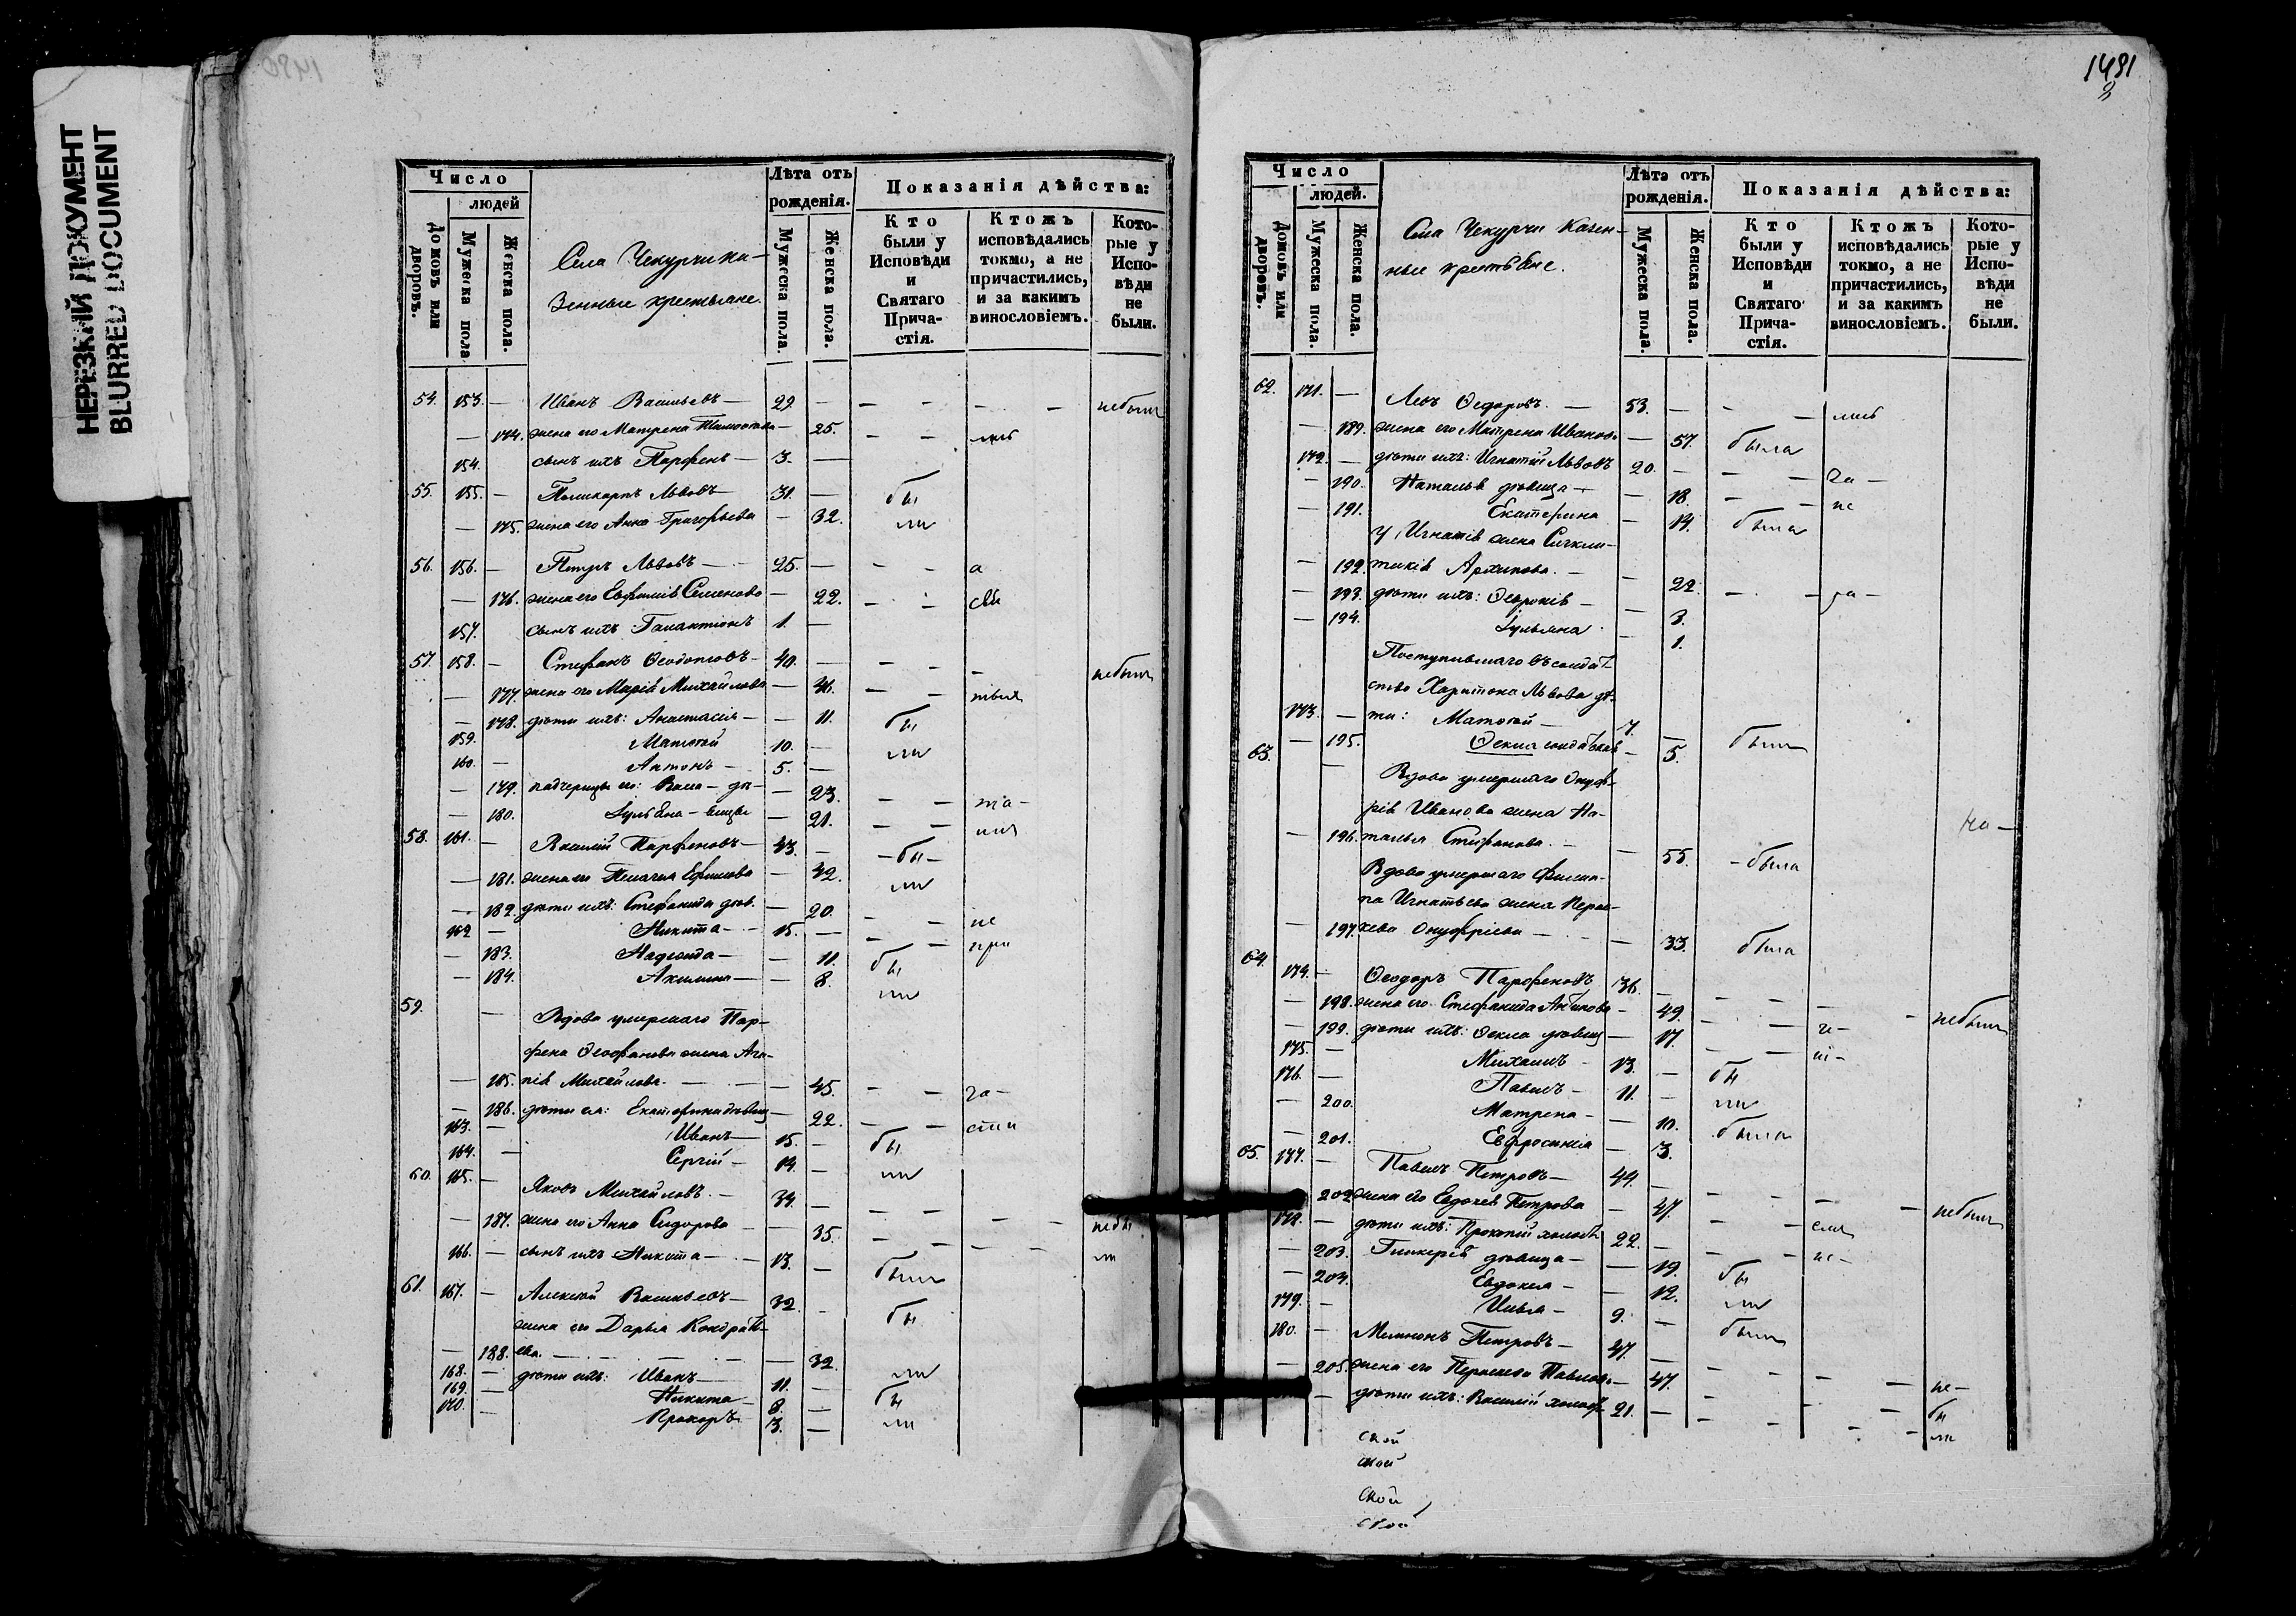 НЕРЕЗКИЙ ДОКУМЕНТ
BLURRED DOCUMENT
1480
Число
людей
Домовъ или дворовъ.
Мужеска пола
Женска пола.
Села Чекурчи ка-
зенные крестьяне.
Лѣта отъ рожденія.
Мужеска пола.
Женска пола.
Показанія дѣйства:
Кто были у Исповѣди и Святаго Причастія.
Ктожъ исповѣдались токмо, а не причастились, и за какимъ винословіемъ.
Которые у Исповѣди не были.
54. 153. — Иванъ Васильевъ — 29. — небыли
— 174. жена его Матрена — 25.
154. сынъ ихъ Парфенъ — 3. —
55. 155. — Поликарпъ Львовъ — 31. — бы
— 175. жена его Анна Григорьева — 32. ли
56. 156. — Петръ Львовъ — 25. —
— 176. жена его Евфимія Семенова — 22.
157. сынъ ихъ Галактіонъ 1. —
57. 158. — Стефанъ Ѳеодотовъ — 40. — небыли
— 177. жена его Марія Михайлова — 41.
— 178. дѣти ихъ: Анастасія — — 11. бы
159. Матвей 10. — ли
160. — Антонъ — 5. —
— 179. падчерицы его: Васса — дѣ- — 23.
— 180. Іуліана — вицы — 21.
58. 161. — Василій Парфеновъ — 43. — бы
— 181. жена его Пелагея Ефимова — 42. ли
— 182. дѣти ихъ: Стефанида дѣв. — 20. не
162 — Никита — 15. — при
— 183. Надежда — — 11. бы
— 184. Акилина — — 8. ли
59. — Вдова умершаго Пар-
фена Ѳеофанова жена Ага-
— 185. пія Михайлова. — — 45.
— 186. дѣти ея: Екатерина дѣвиц — 22.
163. — Иванъ — 15. — бы
164. — Сергій — 14. — ли
60. 165. — Яковъ Михайловъ. — 34. —
— 187. жена его Анна Сидорова — 35. небы
166. — сынъ ихъ Никита — 13. — были ли
61. 167. — Алексѣй Васильевъ — 32. — бы
жена его Дарья Кондрать-
— 188. ева. — — 32. ли
168. — дѣти ихъ: Иванъ — 11. — бы
169. — Никита 8. — ли
170. — Прохоръ 3. —
1481
Число
людей.
Домовъ или дворовъ.
Мужеска пола.
Женска пола.
Села Чекурчи Казен-
ные крестьяне.
Лѣта отъ рожденія.
Мужеска пола.
Женска пола.
Показанія дѣйства:
Кто были у Исповѣди и Святаго Причастія.
Ктожъ исповѣдались токмо, а не причастились, и за какимъ винословіемъ.
Которые у Исповѣди не были.
62. 171. — Левъ Ѳедоровъ. — 53. —
— 189. жена его Матрена Иванова — 57. была
172. — дѣти ихъ: Игнатій Львовъ 20. —
— 190. Наталья дѣвица — — 18.
— 191. Екатерина — 14. была
У Игнатія жена Сигкли-
— 192. тикія Архипова. — — 22.
— 193. дѣти ихъ: Ѳевронія — — 3.
— 194. Іуліана — 1.
Поступившаго въ солдат-
ство Харитона Львова дѣ-
173. — ти: Матвей — 7. — были
— 195. Ѳекла солдатская — 5.
63. — Вдова умершаго Онуф-
рія Иванова жена На-
— 196. талья Стефанова. — — 55. — была
Вдова умершаго Филип-
па Игнатьева жена Парас-
— 197. кева Онуфріева — — 33. была
64. 174. — Ѳеодоръ Парфеновъ 36. — небыли
— 198. жена его Стефанида — 49.
— 199. дѣти ихъ: Ѳекла дѣвиц — 17.
175. — Михаилъ — 13. — бы
176. — Павелъ — 11. — ли
— 200. Матрена — — 10. была
— 201. Евфросинія — 3.
65. 177. — Павелъ Петровъ — 44. — небыли
202 жена его Евдокія Петрова — 47.
178. — дѣти ихъ: Прокопій холостъ 22. —
— 203. Гликерія дѣвица — — 19. бы
— 204. Евдокія — — 12. ли
179. — Илья — 9. — были
180. — Милионъ Петровъ — 47. — не-
— 205. жена его Параскева Павлова — 47. бы
— дѣти ихъ: Василій холост 21. — ли
ской
ской
ской
ской